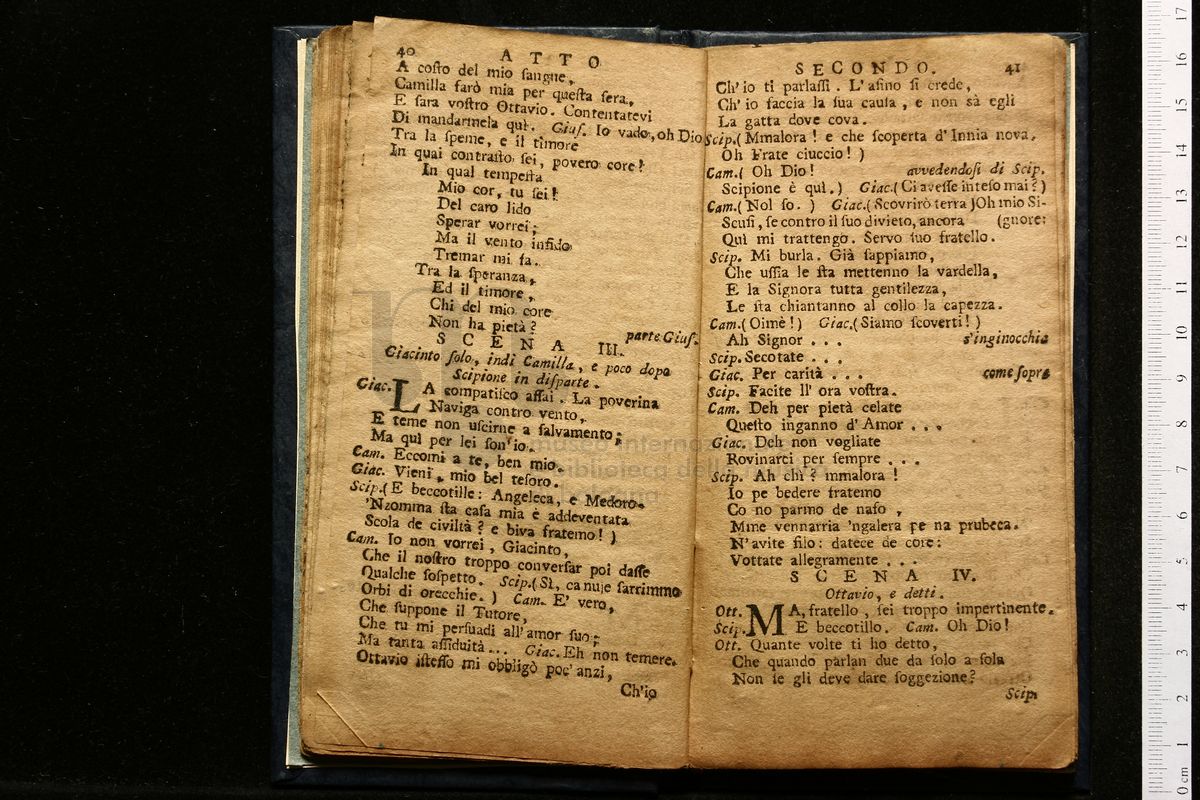 40 ATTO
A costo del mio sangue,
Camilla farò mia per questa sera,
E sara vostro Ottavio. Contentatevi
Di mandarmela quì. Gius. Io vado, oh Dio
Tra la speme, e il timore
In quai contrasto sei, povero core!
In qual tempesta
Mio cor, tu sei!
Del caro lido
Sperar vorrei;
Ma il vento infido
Tremar mi fa.
Tra la speranza,
Ed il timore,
Chi del mio core
Non ha pietà? parte Gius.
SCENA III.
Giacinto solo, indi Camilla, e poco dopo
Scipione in disparte.
Giac. LA compatisco assai. La poverina
Naviga contro vento,
E teme non uscirne a salvamento;
Ma quì per lei son'io.
Cam. Eccomi a te, ben mio.
Giac. Vieni, mio bel tesoro.
Scip. (E beccotille: Angeleca, e Medoro.
'Nzomma sta casa mia è addeventata
Scola de civiltà? e biva fratemo!)
Cam. Io non vorrei, Giacinto,
Che il nostro troppo conversar poi dasse
Qualche sospetto. Scip. (Sì, ca nuje sarrimmo
Orbi di orecchie.) Cam. E' vero,
Che suppone il Tutore,
Che tu mi persuadi all'amor suo;
Ma tanta assiduità... Giac. Eh non temere.
Ottavio istesso mi obbligò poc'anzi,
Ch'io
SECONDO. 41
Ch'io ti parlassi. L'asino si crede,
Ch'io faccia la sua causa, e non sà egli
La gatta dove cova.
Scip. (Mmalora! e che scoperta d'Innia nova.
Oh Frate ciuccio!)
Cam. (Oh Dio! avvedendosi di Scip.
Scipione è quì.) Giac. (Ci avesse inteso mai?)
Cam. (Nol so.) Giac. (Scovrirò terra) Oh mio Si-
Scusi, se contro il suo divieto, ancora (gnore:
Quì mi trattengo. Servo suo fratello.
Scip. Mi burla. Già sappiamo,
Che ussia le sta mettenno la vardella,
E la Signora tutta gentilezza,
Le sta chiantanno al collo la capezza.
Cam. (Oimè!) Giac. (Siamo scoverti!)
Ah Signor... s'inginocchia
Scip. Secotate...
Giac. Per carità... come sopra
Scip. Facite ll'ora vostra.
Cam. Deh per pietà celate
Questo inganno d'Amor...
Giac. Deh non vogliate
Rovinarci per sempre...
Scip. Ah chì? mmalora!
Io pe bedere fratemo
Co no parmo de naso,
Mme vennarria 'ngalera pe na prubeca.
N'avite filo: datece de core:
Vottate allegramente...
SCENA IV.
Ottavio, e detti.
Ott. MA, fratello, sei troppo impertinente.
Scip. E beccotillo. Cam. Oh Dio!
Ott. Quante volte ti ho detto,
Che quando parlan due da solo a sola
Non se gli deve dare soggezione?
Scip.